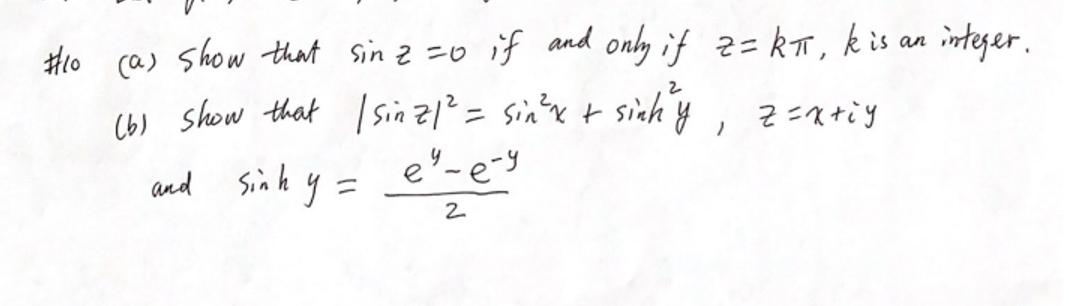 #10 (a) Show that sin z = 0 if and only if z = kπ, k is an integer.
(b) Show that |sin z|² = sin²x + sinh²y , z = x + iy
and sinh y = (e^y - e^-y)/2